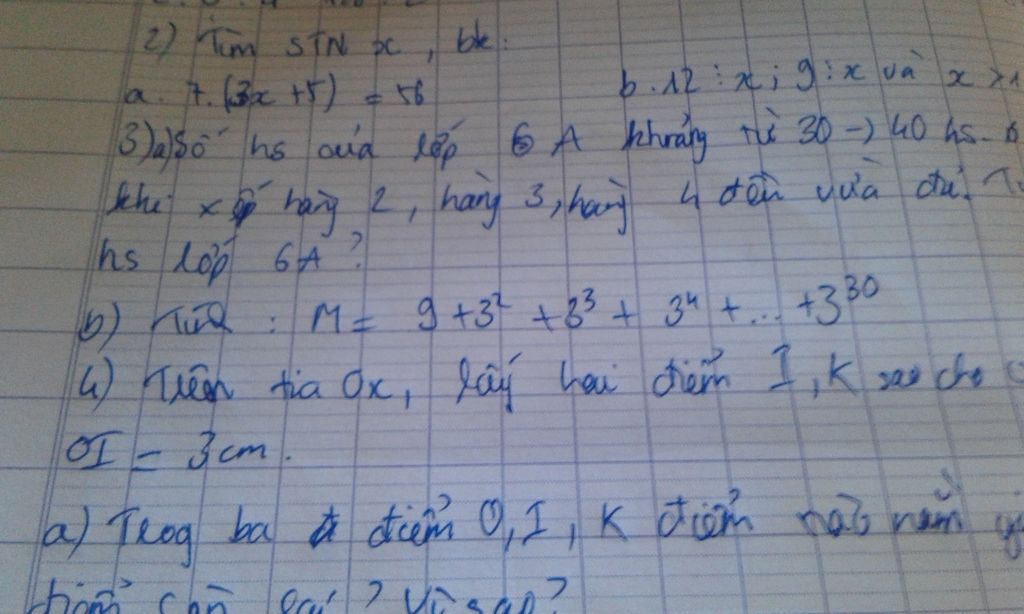 2) Tìm STN x, bk:
a. 7.(3x+5) = 56 b. 12 ⋮ x; 9 ⋮ x và x > 1
3) a) Số hs của lớp 6A khoảng từ 30 → 40 hs.
khi xếp hàng 2, hàng 3, hàng 4 đều vừa đủ.
hs lớp 6A?
b) Tính: M = 9 + 3² + 3³ + 3⁴ + ... + 3³⁰
4) Trên tia Ox, lấy hai điểm I, K sao cho
OI = 3cm.
a) Trog ba điểm O, I, K điểm nào nằm
điểm còn lại? Vì sao?